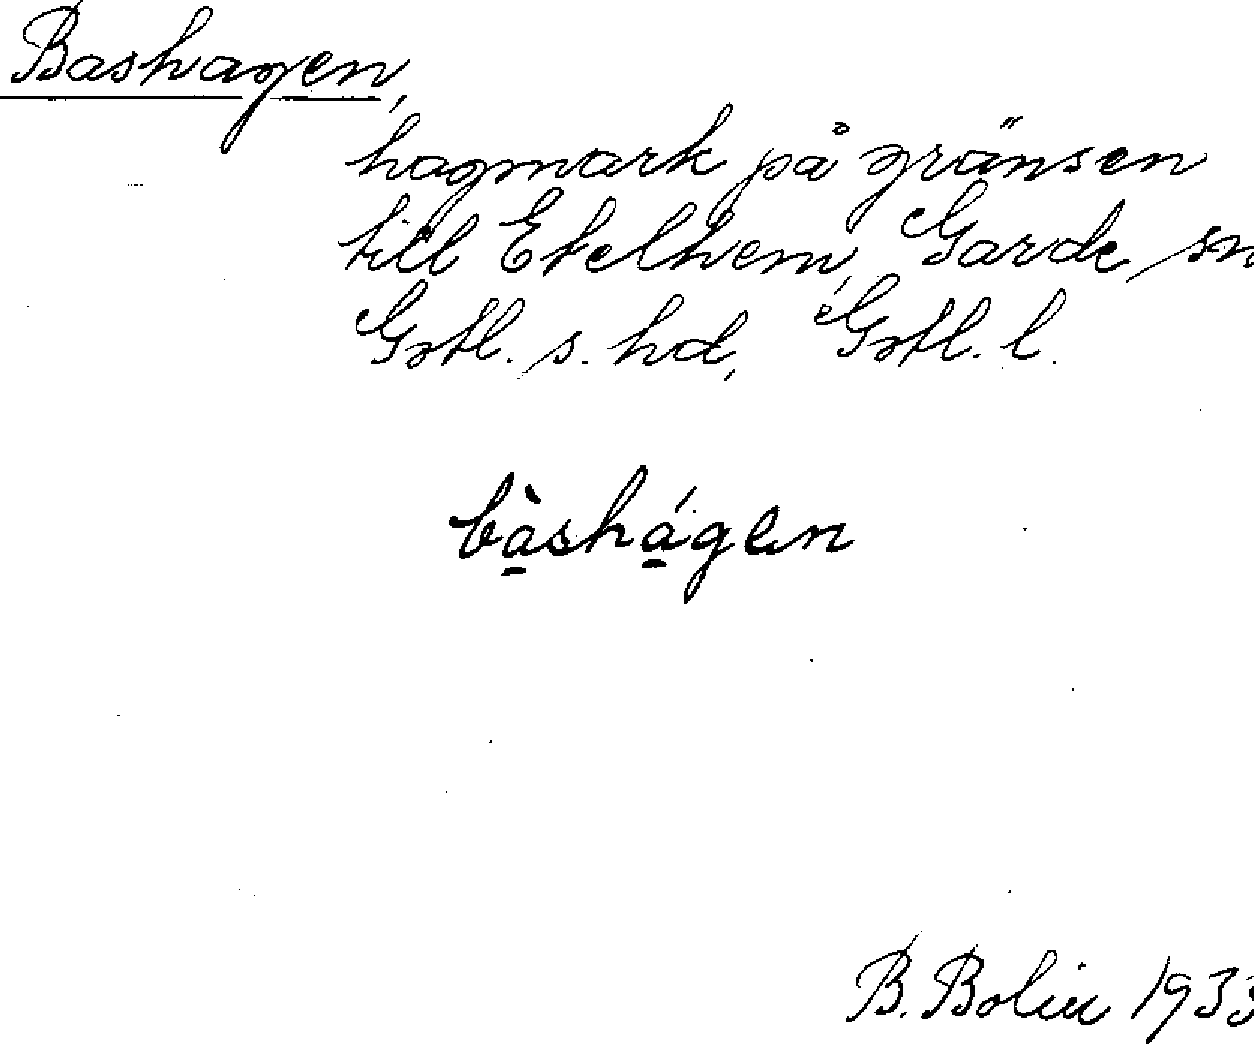 Bashagen,
hagmark på gränsen
till Etelhem, Garde sn
Gotl. s. hd, Gotl. l.
bàshágen
B. Bolin 1933